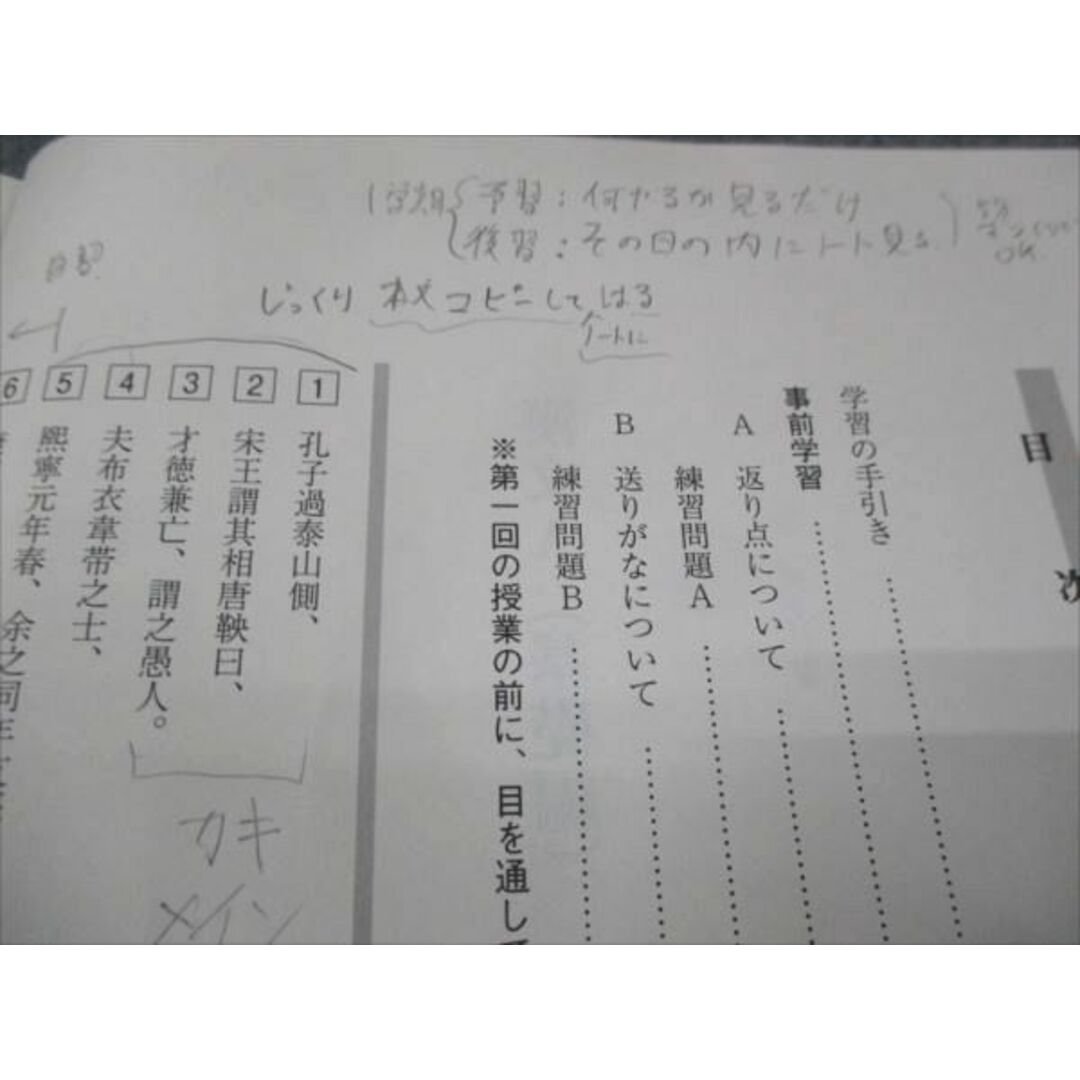 1学期 予習：何やるか見るだけ
復習：その日の内にノート見る
OK
じっくり 本文コピーしてはる
ノートに
目次
学習の手引き
事前学習
A 返り点について
練習問題A
B 送りがなについて
練習問題B
※第一回の授業の前に、目を通して
1 孔子過泰山側、
2 宋王謂其相唐鞅曰、
3 才徳兼亡、謂之愚人。
4 夫布衣韋帯之士、
5 熙寧元年春、余之同年
6
カキ
メイン